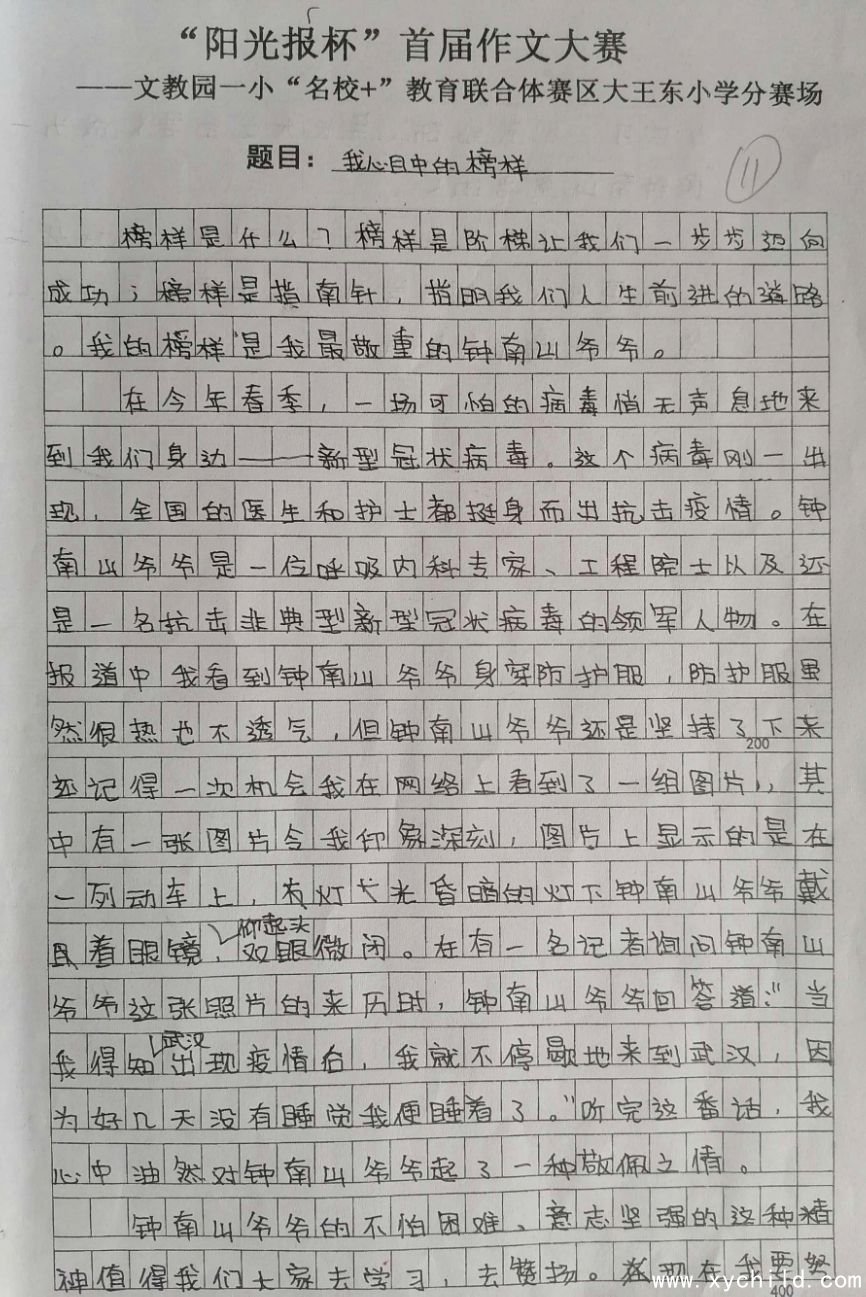 “阳光报杯”首届作文大赛
——文教园一小“名校+”教育联合体赛区大王东小学分赛场
题目：我心目中的榜样
11
榜样是什么？榜样是阶梯让我们一步步迈向
成功；榜样是指南针，指明我们人生前进的道路
。我的榜样是我最敬重的钟南山爷爷。
在今年春季，一场可怕的病毒悄无声息地来
到我们身边——新型冠状病毒。这个病毒刚一出
现，全国的医生和护士都挺身而出抗击疫情。钟
南山爷爷是一位呼吸内科专家、工程院士以及还
是一名抗击非典型新型冠状病毒的领军人物。在
报道中我看到钟南山爷爷身穿防护服，防护服虽
然很热也不透气，但钟南山爷爷还是坚持了下来
200
还记得一次机会我在网络上看到了一组图片，其
中有一张图片令我印象深刻，图片上显示的是在
一列动车上，在灯光昏暗的灯下钟南山爷爷戴
着眼镜，仰起头双眼微闭。在有一名记者询问钟南山
爷爷这张照片的来历时，钟南山爷爷回答道：“当
我得知武汉出现疫情后，我就不停歇地来到武汉，因
为好几天没有睡觉我便睡着了。”听完这番话，我
心中油然对钟南山爷爷起了一种敬佩之情。
钟南山爷爷的不怕困难、意志坚强的这种精
神值得我们大家去学习，去赞扬。在现在我要努
400
www.xychild.com